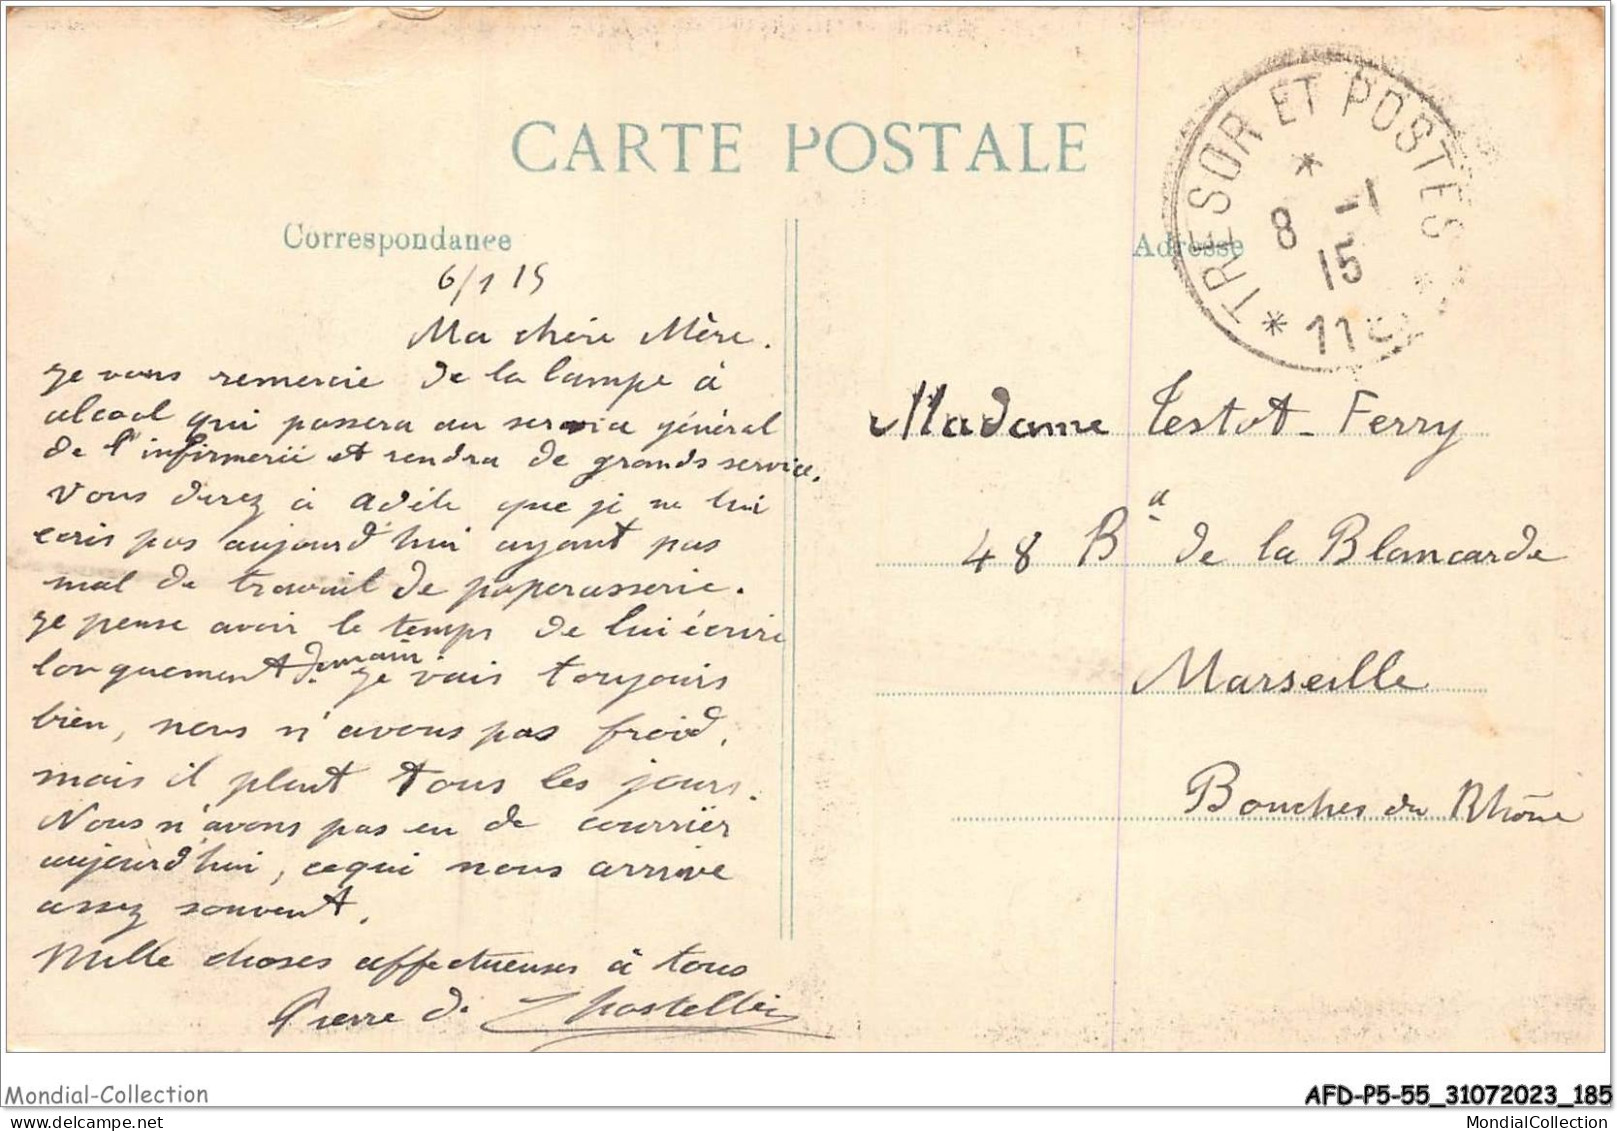 CARTE POSTALE
Correspondance
Adresse
TRESOR ET POSTES
8 -1
15
6/1 15
Ma chère Mère.
Je vous remercie de la lampe à
alcool qui passera au service général
de l'infirmerie et rendra de grands service.
Vous direz à Adèle que je ne lui
ecris pas aujourd'hui ayant pas
mal de travail de paperasserie.
Je pense avoir le temps de lui écrire
longuement demain. Je vais toujours
bien, nous n'avons pas froid,
mais il pleut tous les jours.
Nous n'avons pas eu de courrier
aujourd'hui, ce qui nous arrive
assez souvent.
Mille choses affectueuses à tous
Pierre de
Madame Testot-Ferry
48 Bd de la Blancarde
Marseille
Bouches du Rhône
Mondial-Collection
AFD-P5-55_31072023_185
MondialCollection